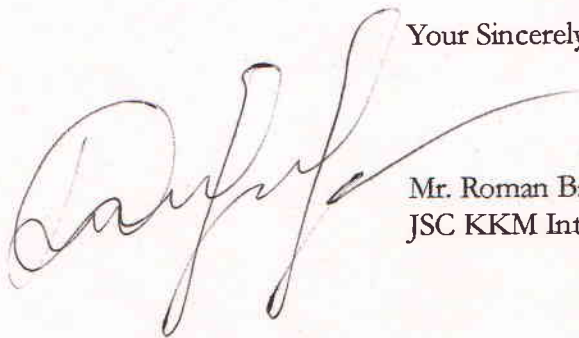 Your Sincerely
Mr. Roman B
JSC KKM Int